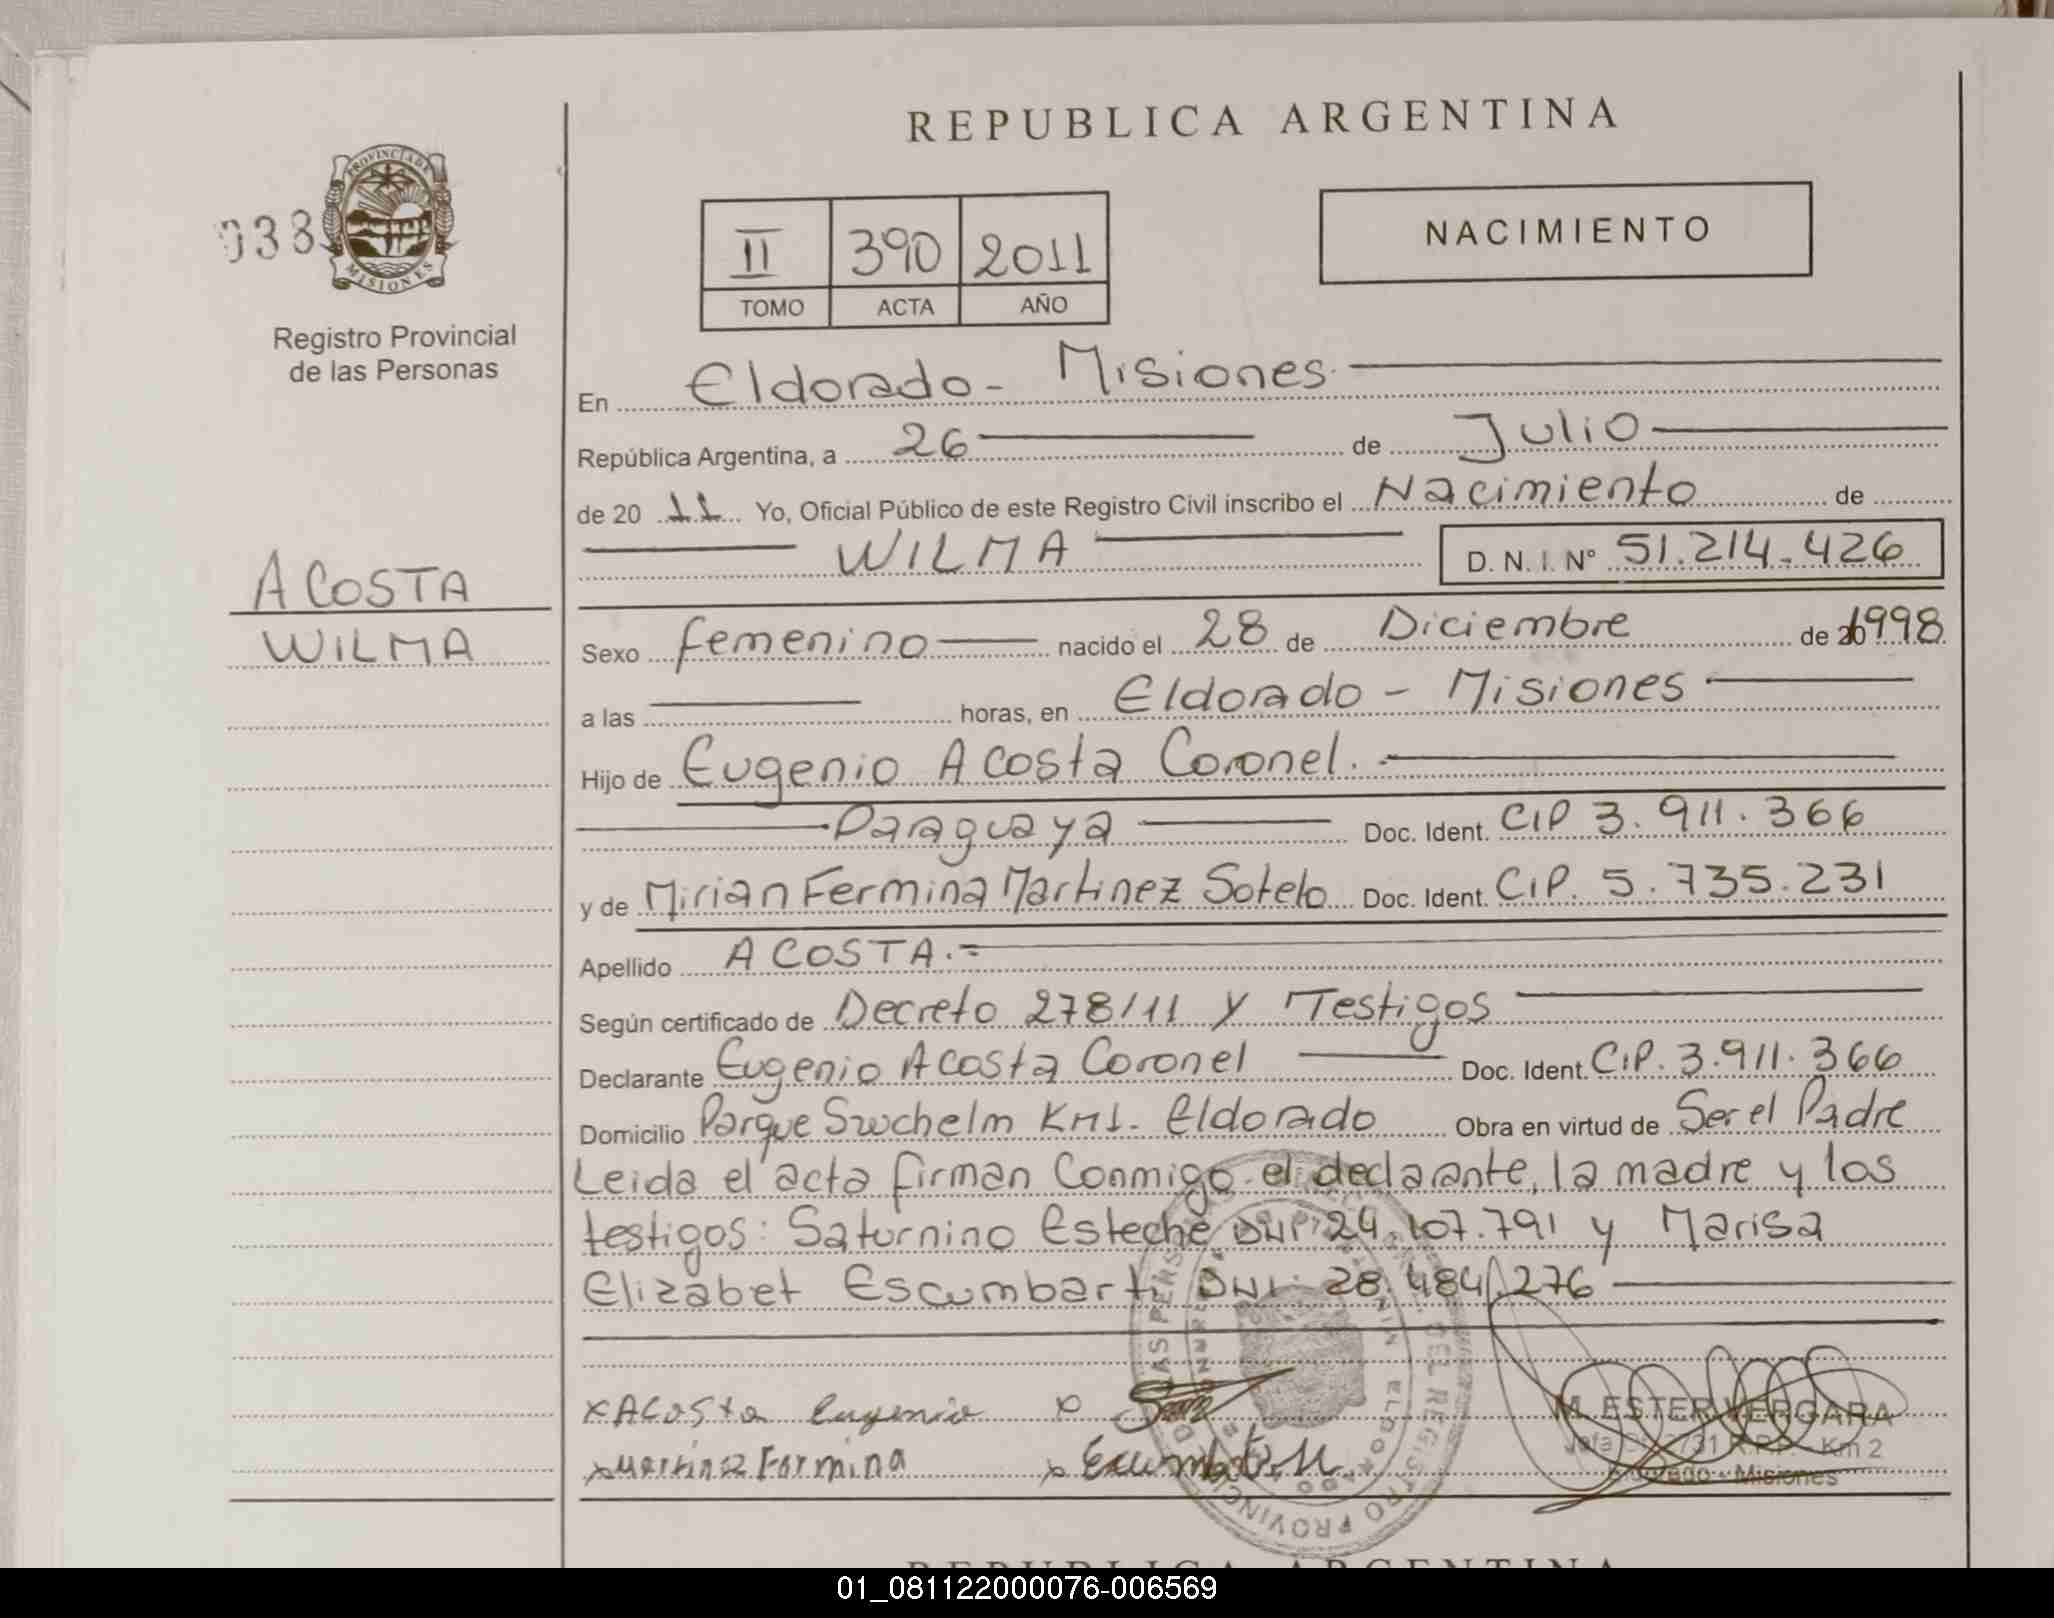 REPUBLICA ARGENTINA
PROVINCIA DE
MISIONES
038
Registro Provincial
de las Personas
II 390 2011
TOMO ACTA AÑO
NACIMIENTO
En Eldorado - Misiones
República Argentina, a 26 de Julio
de 20 11 Yo, Oficial Público de este Registro Civil inscribo el Nacimiento de
WILMA D. N. I. Nº 51.214.426
ACOSTA
WILMA
Sexo femenino nacido el 28 de Diciembre de 1998
a las horas, en Eldorado - Misiones
Hijo de Eugenio Acosta Coronel.
Paraguaya Doc. Ident. CIP 3.911.366
y de Mirian Fermina Martinez Sotelo Doc. Ident. CIP. 5.735.231
Apellido ACOSTA.=
Según certificado de Decreto 278/11 y Testigos
Declarante Eugenio Acosta Coronel Doc. Ident. CIP. 3.911.366
Domicilio Parque Swchelm KM1. Eldorado Obra en virtud de Ser el Padre
Leida el acta firman Conmigo el declarante, la madre y los
testigos: Saturnino Esteche DNI 24.107.791 y Marisa
Elizabet Escumbart DNI. 28.484.276
x Acosta Eugenio x
x Martinez Formina x
M. ESTER VERGARA
Km 2
Eldorado - Misiones
REGISTRO PROVINCIAL DE LAS PERSONAS
ELDORADO
REPUBLICA ARGENTINA
01_081122000076-006569